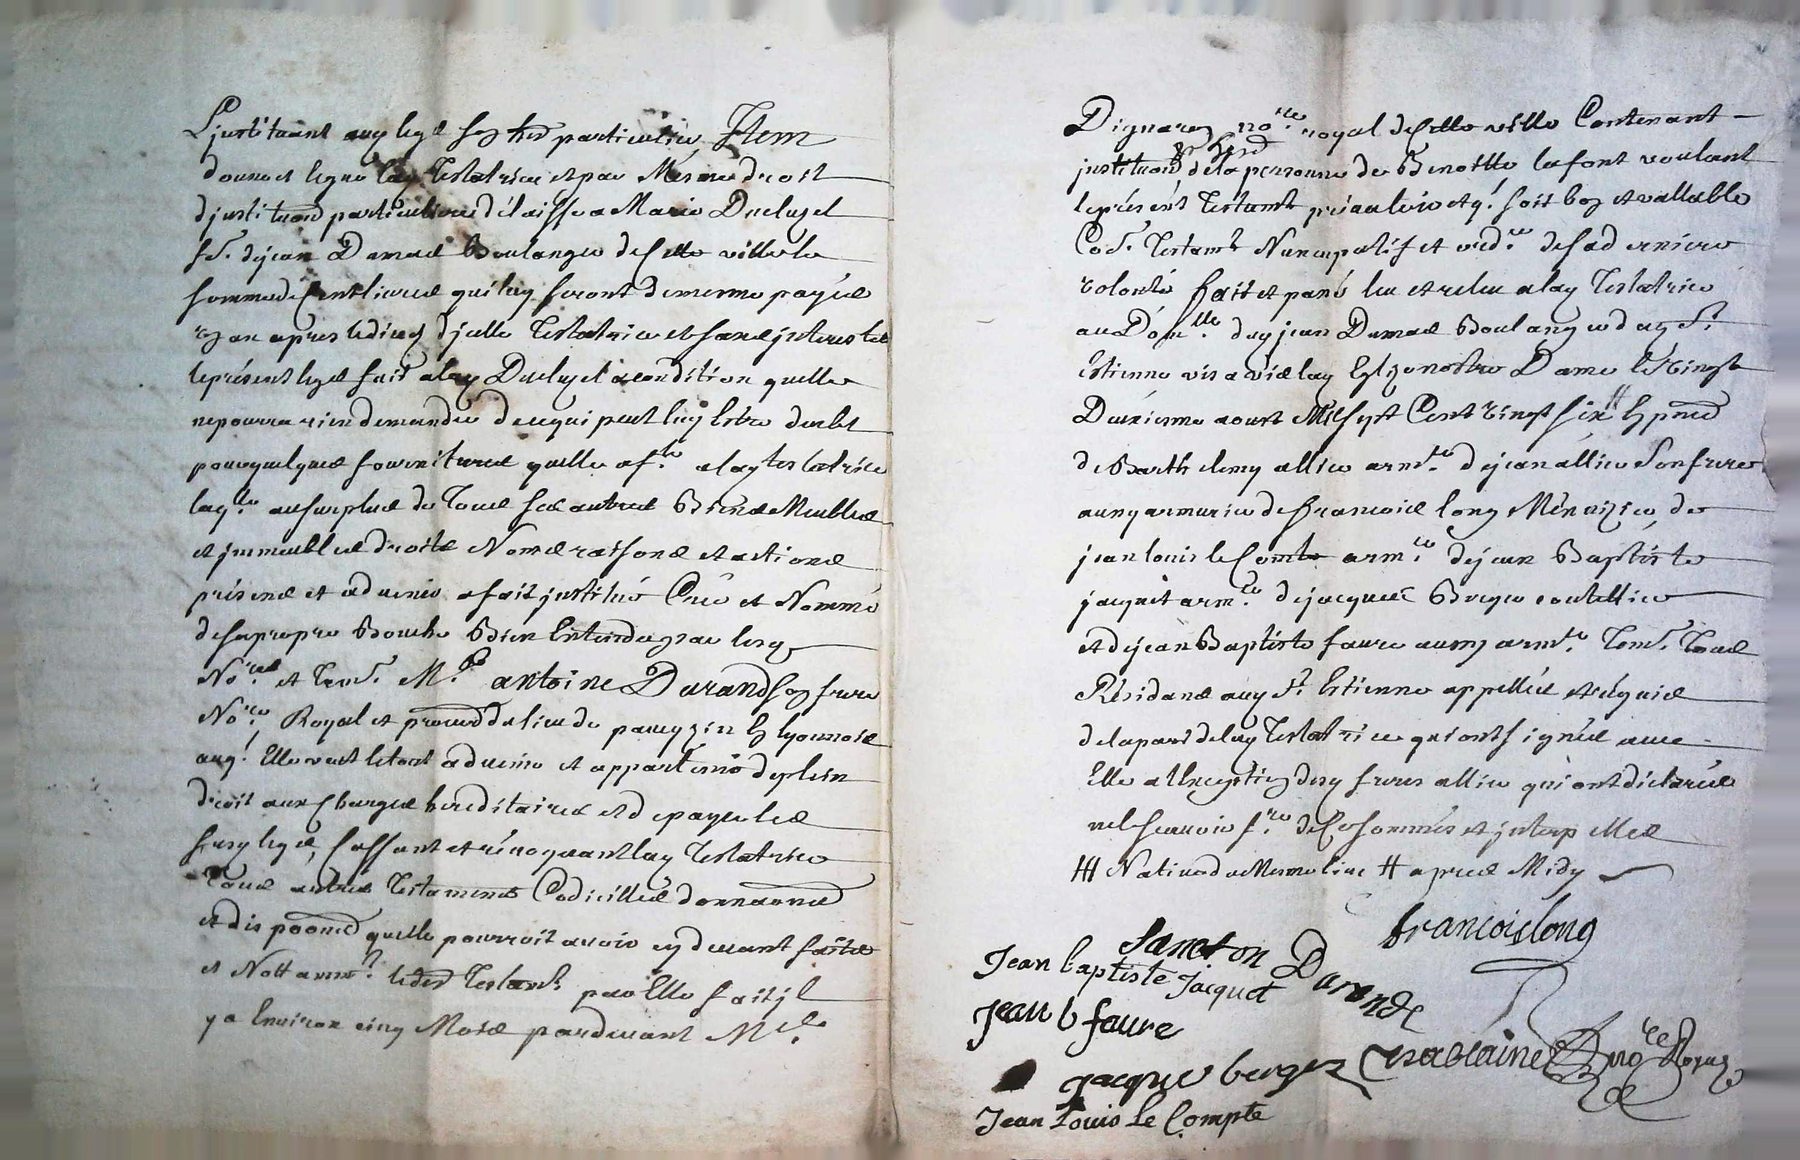 L justituant auxy legt soy hers particuliere, Item
donne et legue lay Testatrice et par Mesme droit
d justituaon particuliere délaisse a Marie Duclozel
fe. de jean Dumas Boulanger de cette ville la
somme de Cent livres qui luy seront de mesme payée
ey an apres le dices d jcelle Testatrice et sans jnterests
le présent legs fait a lay Duclozel a condition quelle
ne pourra rien demander de ce qui peut luy Estre deubt
pour quelques fournitures quelle a fte a lay testatrice
laqlle au surplus de Tous ses autres Biens Meubles
et jmmeubles droits Noms raisons et actions
présens et advenir, a fait justitué Créé et Nommé
de sa propre Bouche Bien Entendu par lesy
Nores et Tems. Me antoine Durand soy frere
Nore Royal et du lieu de en lyonnois
auql Elle veut le tout advenir et appartenir de plein
droit aux Charges hereditaires et de payer les
susy legs, Cassant et révoquant lay Testatrice
Tous autres Testaments Codicilles donnaons
et dispoons quelle pourroit avoir cy devant faites
et Nottamt le Testamt par Elle fait jl
y a Environ cinq Mois pardevant Me
nore royal de cette ville Contenant
justituaon de la personne de Benoitte lafont voulant
le présent Testamt prévaloir et ql soit boy et vallable
Testamt Nuncupatif et de sa derniere
volonté fait et passé lu et relu a lay Testatrice
au Domlle duy jean Dumas Boulanger day St
Estienne vis a vis lay Eglize nostre Dame le Vingt
Deuxieme aoust Mil sept Cent Vingt six # Ey pnce
de Barthelemy allier armer de jean allier Son frere
aussy armurier de francois long Menuizier, de
jean louis le Comte armer de jean Baptiste
jacquet armer de jacques Berger coutellier
et de jean Baptiste faure aussy armer Tems. Tous
Résidans auy St Estienne appellés et réquis
de la part de lay Testatrice qui ont signés avec
Elle a lException desy freres allier qui ont déclarés
ne Scavoir fre de Ce sommés et jnterpellés
# Native de # apres Midy
francois long
Sancton Durande
Jean baptiste Jacquet
Jean b faure
Jacque berger nore Royal
Jean Louis Le Compte